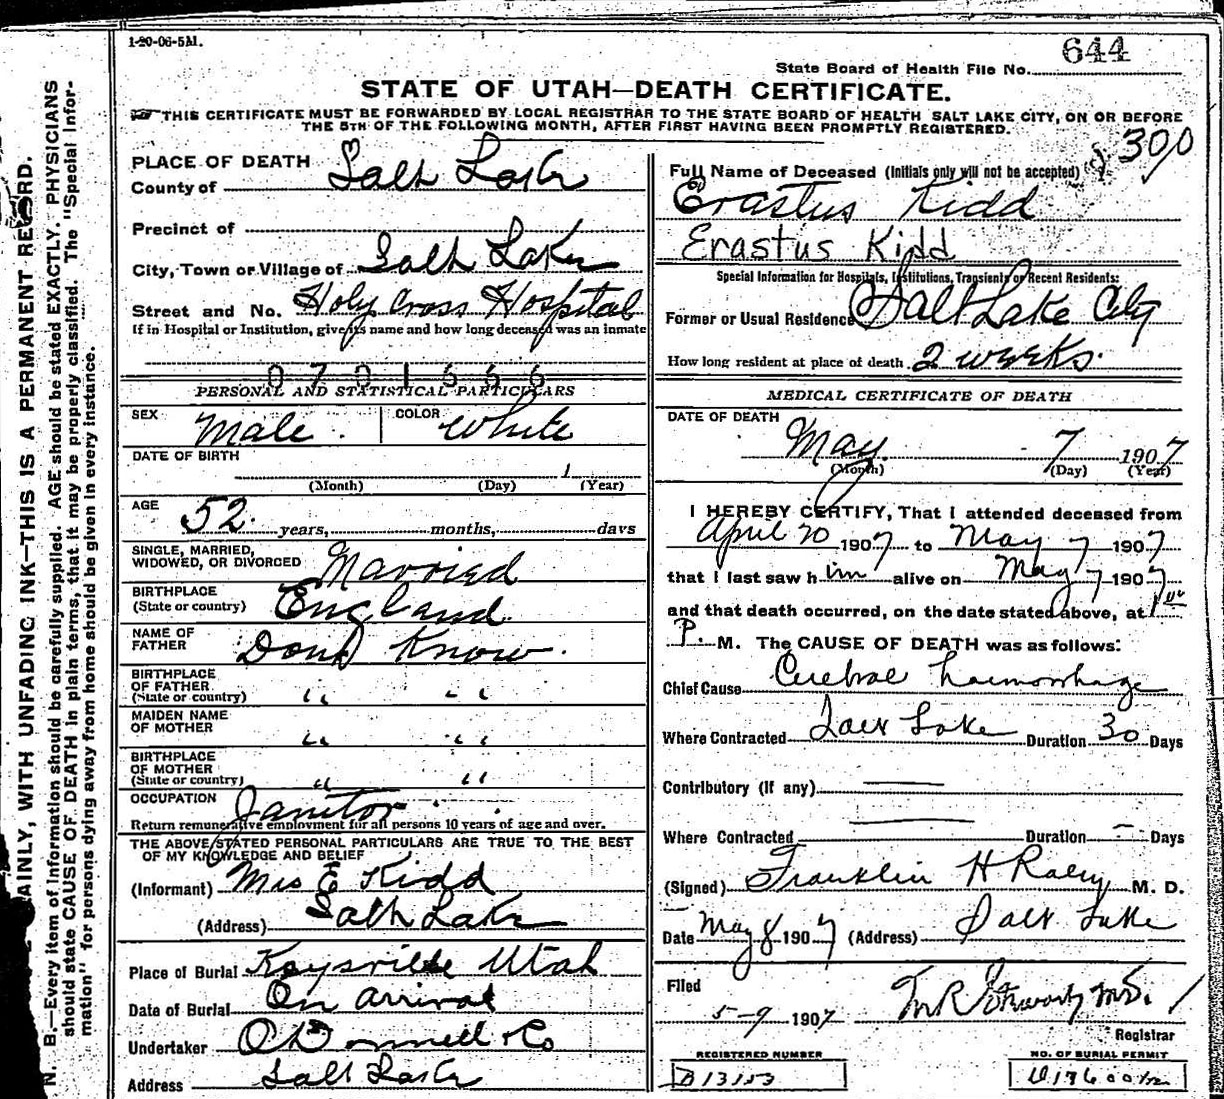 1-20-06-5M.
644
State Board of Health File No.
STATE OF UTAH—DEATH CERTIFICATE.
THIS CERTIFICATE MUST BE FORWARDED BY LOCAL REGISTRAR TO THE STATE BOARD OF HEALTH SALT LAKE CITY, ON OR BEFORE
THE 5TH OF THE FOLLOWING MONTH, AFTER FIRST HAVING BEEN PROMPTLY REGISTERED.
N. B.—Every item of information should be carefully supplied. AGE should be stated EXACTLY. PHYSICIANS
should state CAUSE OF DEATH in plain terms, that it may be properly classified. The "Special Infor-
mation" for persons dying away from home should be given in every instance.
AINLY, WITH UNFADING INK—THIS IS A PERMANENT RECORD.
PLACE OF DEATH
County of Salt Lake
Precinct of
City, Town or Village of Salt Lake
Street and No. Holy Cross Hospital
If in Hospital or Institution, give its name and how long deceased was an inmate
0701556
PERSONAL AND STATISTICAL PARTICULARS
SEX Male COLOR White
DATE OF BIRTH
(Month) (Day) 1 (Year)
AGE 52 years, months, days
SINGLE, MARRIED,
WIDOWED, OR DIVORCED Married
BIRTHPLACE
(State or country) England
NAME OF
FATHER Dont Know.
BIRTHPLACE
OF FATHER
(State or country) " "
MAIDEN NAME
OF MOTHER " "
BIRTHPLACE
OF MOTHER
(State or country) " "
OCCUPATION Janitor
Return remunerative employment for all persons 10 years of age and over.
THE ABOVE STATED PERSONAL PARTICULARS ARE TRUE TO THE BEST
OF MY KNOWLEDGE AND BELIEF
(Informant) Mrs E Kidd
(Address) Salt Lake
Place of Burial Kaysville Utah
Date of Burial On arrival
Undertaker O'Donnell & Co
Address Salt Lake
300
Full Name of Deceased (Initials only will not be accepted)
Erastus Kidd
Erastus Kidd
Special Information for Hospitals, Institutions, Transients or Recent Residents:
Former or Usual Residence Salt Lake City
How long resident at place of death 2 weeks.
MEDICAL CERTIFICATE OF DEATH
DATE OF DEATH
May 7 1907
(Month) (Day) (Year)
I HEREBY CERTIFY, That I attended deceased from
April 20 1907 to May 7 1907
that I last saw him alive on May 7 1907
and that death occurred, on the date stated above, at 1
P. M. The CAUSE OF DEATH was as follows:
Chief Cause Cerebral haemorrhage
Where Contracted Salt Lake Duration 30 Days
Contributory (If any)
Where Contracted Duration — Days
(Signed) Franklin H Raley M. D.
Date May 8 1907 (Address) Salt Lake
Filed
5-9 1907
Registrar
REGISTERED NUMBER
B13153
NO. OF BURIAL PERMIT